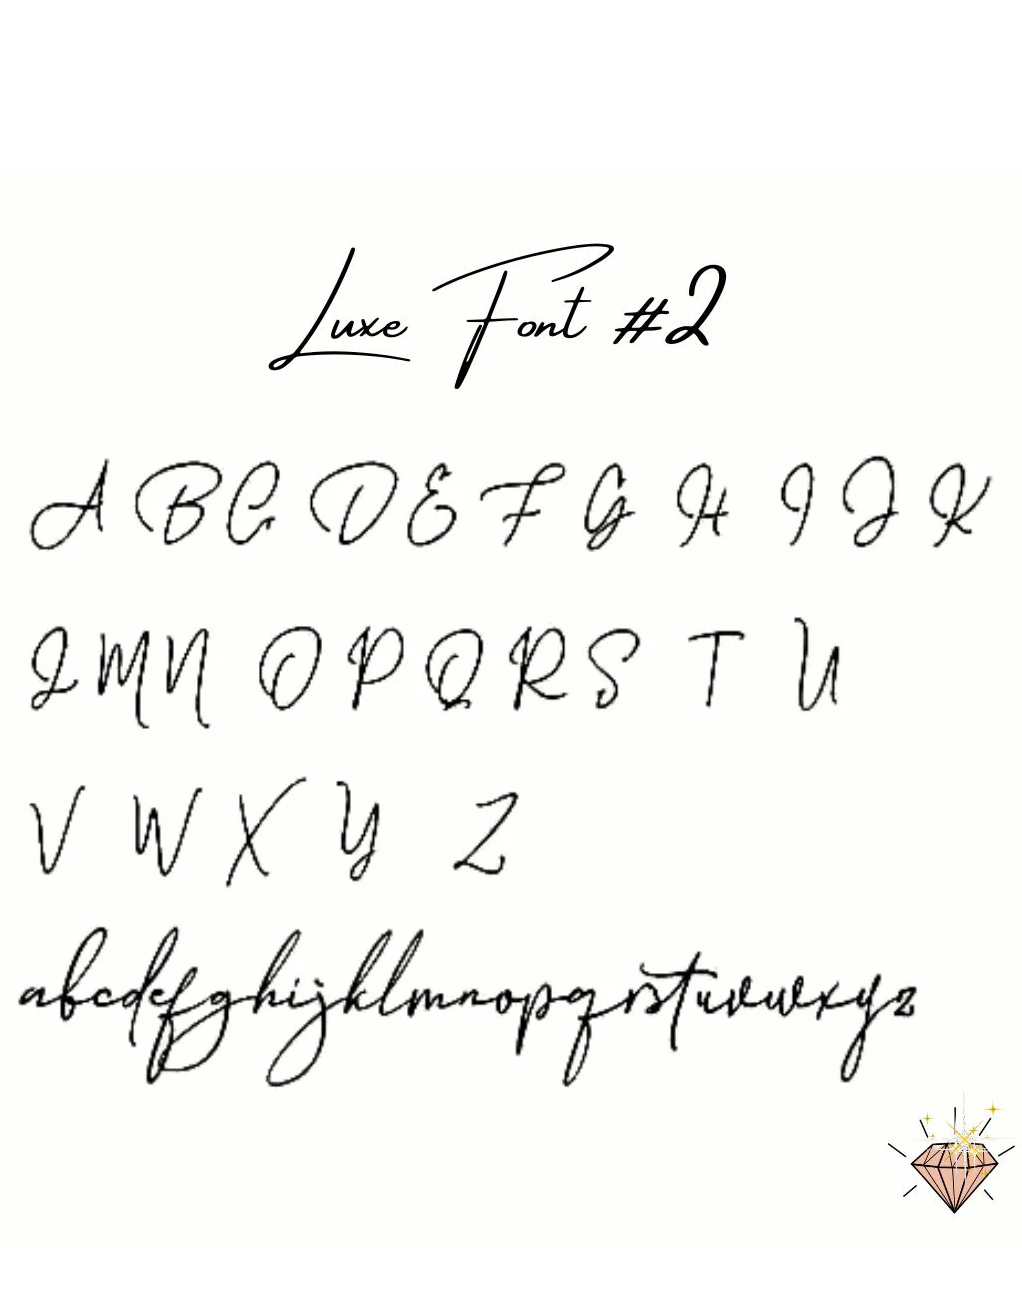 Luxe Font #2
A B C D E F G H I J K
L M N O P Q R S T U
V W X Y Z
abcdefghijklmnopqrstuvwxyz